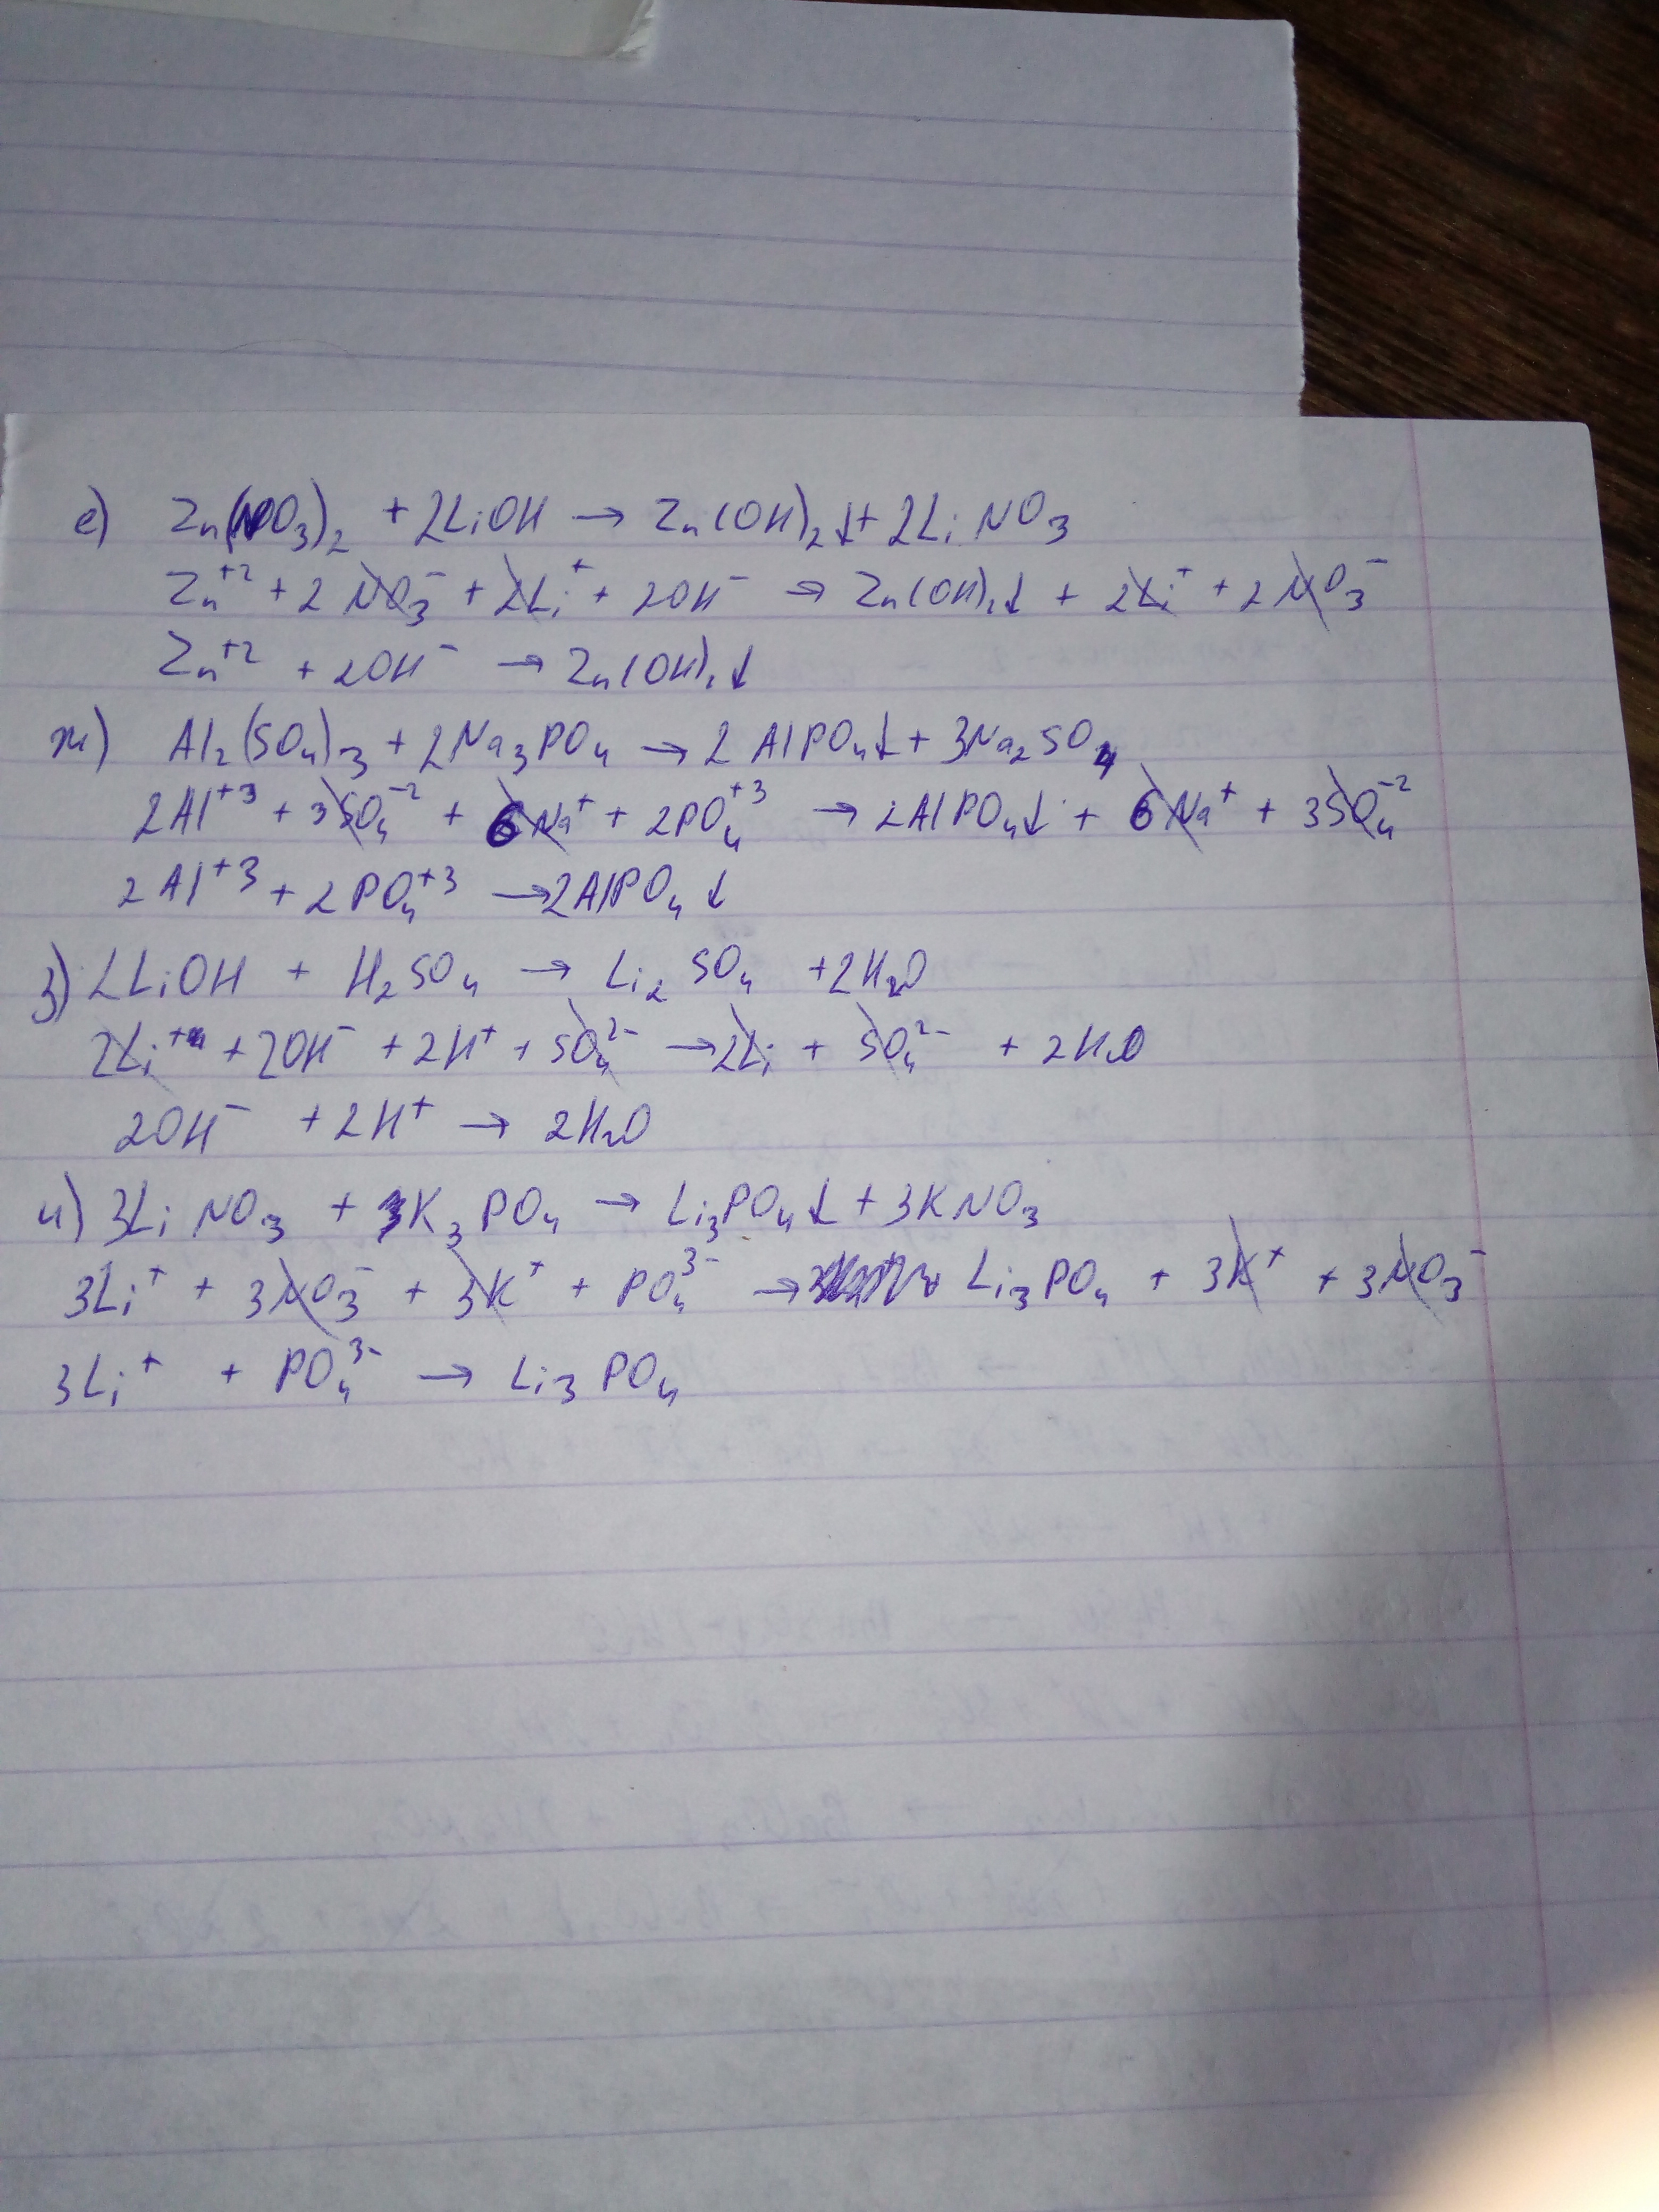 е) Zn(NO₃)₂ + 2LiOH → Zn(OH)₂↓ + 2LiNO₃
Zn⁺² + 2NO₃⁻ + 2Li⁺ + 2OH⁻ → Zn(OH)₂↓ + 2Li⁺ + 2NO₃⁻
Zn⁺² + 2OH⁻ → Zn(OH)₂↓
ж) Al₂(SO₄)₃ + 2Na₃PO₄ → 2AlPO₄↓ + 3Na₂SO₄
2Al⁺³ + 3SO₄⁻² + 6Na⁺ + 2PO₄⁺³ → 2AlPO₄↓ + 6Na⁺ + 3SO₄⁻²
2Al⁺³ + 2PO₄⁺³ → 2AlPO₄↓
з) 2LiOH + H₂SO₄ → Li₂SO₄ + 2H₂O
2Li⁺ + 2OH⁻ + 2H⁺ + SO₄²⁻ → 2Li + SO₄²⁻ + 2H₂O
2OH⁻ + 2H⁺ → 2H₂O
и) 3LiNO₃ + 3K₃PO₄ → Li₃PO₄↓ + 3KNO₃
3Li⁺ + 3NO₃⁻ + 3K⁺ + PO₄³⁻ → Li₃PO₄ + 3K⁺ + 3NO₃⁻
3Li⁺ + PO₄³⁻ → Li₃PO₄